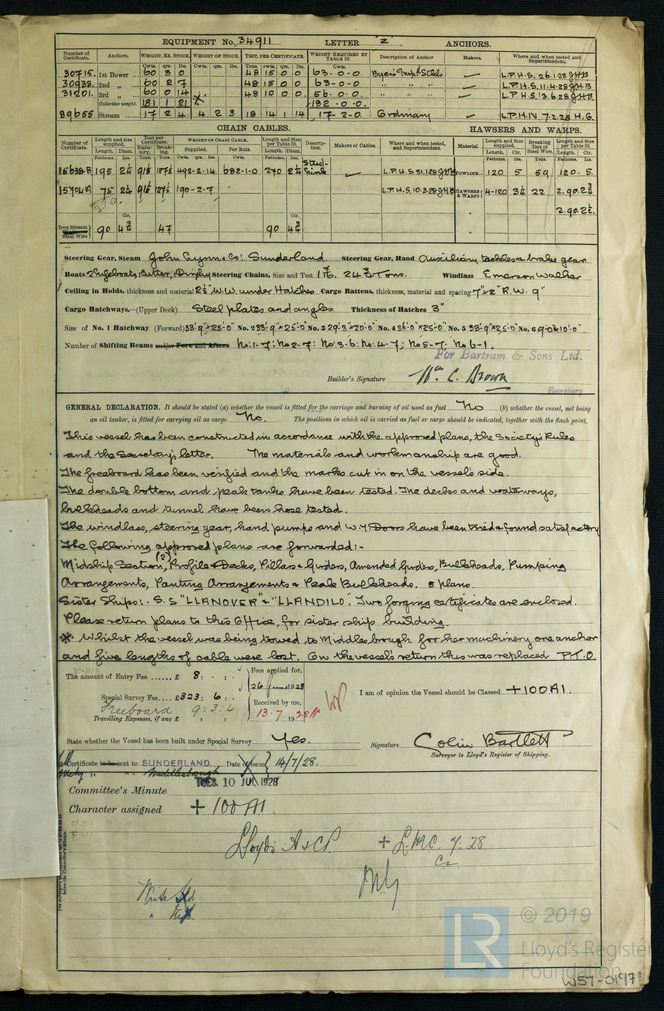 EQUIPMENT No. 34911 LETTER z ANCHORS.
Number of Certificate. Anchors. WEIGHT, EX. STOCK. WEIGHT OF STOCK. TEST, PER CERTIFICATE. WEIGHT REQUIRED BY TABLE 53. Description of Anchor Makers. Where and when tested and Superintendent.
Cwts. qrs. lbs. Cwts. qrs. lbs. Tons. cwts. qrs. lbs. Cwts.
30715. 1st Bower 60 3 0 48 15 0 0 63-0-0 L.P.H.S. 26.1.28
30938. 2nd „ 60 2 7 48 15 0 0 63-0-0 „ „ „ L.P.H.S. 11.4.28
31201. 3rd „ 60 0 14 48 10 0 0 56.0.0 „ „ „ L.P.H.S. 13.6.28
Collective weight. 181 1 21 182.0.0.
89655 Stream 17 2 4 4 2 3 18 14 1 14 17 2.0 Ordinary L.P.H.N. 7.2.28 H.G.
CHAIN CABLES. HAWSERS AND WARPS.
Number of Certificate. Length and size supplied. Test per Certificate. WEIGHT OF CHAIN CABLE. Length and Size per Table 53. Description. Makers of Cables. Where and when tested, and Superintendent. Material. Length and size supplied. Breaking Test of Steel Wire. Length and Size per Table 53.
Length. Diam. Supplied. Per Rule. Length. Diam. Length. Cir. Length. Cir.
195 492-2-14 682-1-0 270 Stud Link L.P.H.S. 31.1.28 TOWLINE 120 5 59 120.5
75 190-2-7 L.P.H.S. 10.3.28 HAWSERS & WARPS 4-120 22
Iron Stream or Steel Wire 90 47 90
Steering Gear, Steam John Lynn & Co: Sunderland. Steering Gear, Hand Auxiliary tackles & brake gear
Boats 2 lifeboats, Cutter, Dinghy Steering Chains, Size and Test Tons. Windlass Emerson Walker
Ceiling in Holds, thickness and material 2½" W.W. under Hatches Cargo Battens, thickness, material and spacing 7"x2" R.W. 9"
Cargo Hatchways.—(Upper Deck) Steel plates and angles Thickness of Hatches 3"
Size of No. 1 Hatchway (Forward) 33'9"x25'0" No. 2 33'9"x25'0" No. 3 29'3"x20'0" No. 4 36'0"x25'0" No. 5 33'9"x25'0" No. 6 9'0"x10'0"
Number of Shifting Beams and/or Fore and Afters No:1-7; No 2-7; No 3-6; No:4-7; No 5-7; No 6-1.
For Bartram & Sons Ltd.
Builder's Signature Wm C. Brown
Secretary
GENERAL DECLARATION. It should be stated (a) whether the vessel is fitted for the carriage and burning of oil used as fuel No (b) whether the vessel, not being
an oil tanker, is fitted for carrying oil as cargo No. The positions in which oil is carried as fuel or cargo should be indicated, together with the flash point,
This vessel has been constructed in accordance with the approved plans, the Society's Rules
and the Secretary's letter. The materials and workmanship are good.
The freeboard has been verified and the marks cut in on the vessel's side.
The double bottom and peak tanks have been tested. The decks and waterways,
bulkheads and tunnel have been hose tested.
The windlass, steering gear, hand pumps and W.T. Doors have been tried & found satisfactory
The following approved plans are forwarded:-
Midship Section, (2) Profile & Decks, Pillars & Girders, Amended Girders, Bulkheads, Pumping
Arrangements, Panting Arrangements & Peak Bulkheads. 8 plans.
Sister Ships:- S.S "LLANOVER" & "LLANDILO". Two forging certificates are enclosed.
Please return plans to this Office, for sister ship building.
* Whilst the vessel was being towed to Middlesbrough for her machinery one anchor
and five lengths of cable were lost. On the vessel's return this was replaced P.T.O
The amount of Entry Fee £ 8 : :
Special Survey Fee £323 : 6 :
Freeboard 9:3:4
Travelling Expenses, if any £
Fees applied for, 26 June 1928
Received by me, 13.7.1928
I am of opinion the Vessel should be Classed +100A1.
State whether the Vessel has been built under Special Survey Yes.
Signature Colin Bartlett
Surveyor to Lloyd's Register of Shipping.
Certificate to be sent to SUNDERLAND. Date of issue 14/7/28.
Middlesbrough
TUES. 10 JUL 1928
Committee's Minute
Character assigned + 100A1
Lloyd's A & CP. + LMC 7.28
Write Sld
© 2019
LR
Lloyd's Register
Foundation
W57-0197